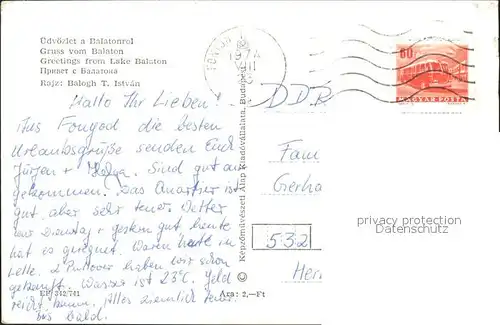 Üdvözlet a Balatonról
Gruss vom Balaton
Greetings from Lake Balaton
Привет с Балатона
Rajz: Balogh T. István
Hallo Ihr Lieben!
Aus Fonyod die besten
Urlaubsgrüße senden Euch
Jürgen + Helga. Sind gut an-
gekommen. Das Quartier ist
gut, aber sehr teuer. Wetter
war Dienstag + gestern gut, heute
hat es geregnet. Waren heute in
2 Pullover haben wir schon
gekauft. Wasser ist 23°C. Geld
reicht kaum. Alles ziemlich teuer.
bis bald.
Ára: 2,-Ft
Képzőművészeti Alap Kiadóvállalata, Budapest
60
MAGYAR POSTA
DDR
Fam
Gerha
532
Her
privacy protection
Datenschutz